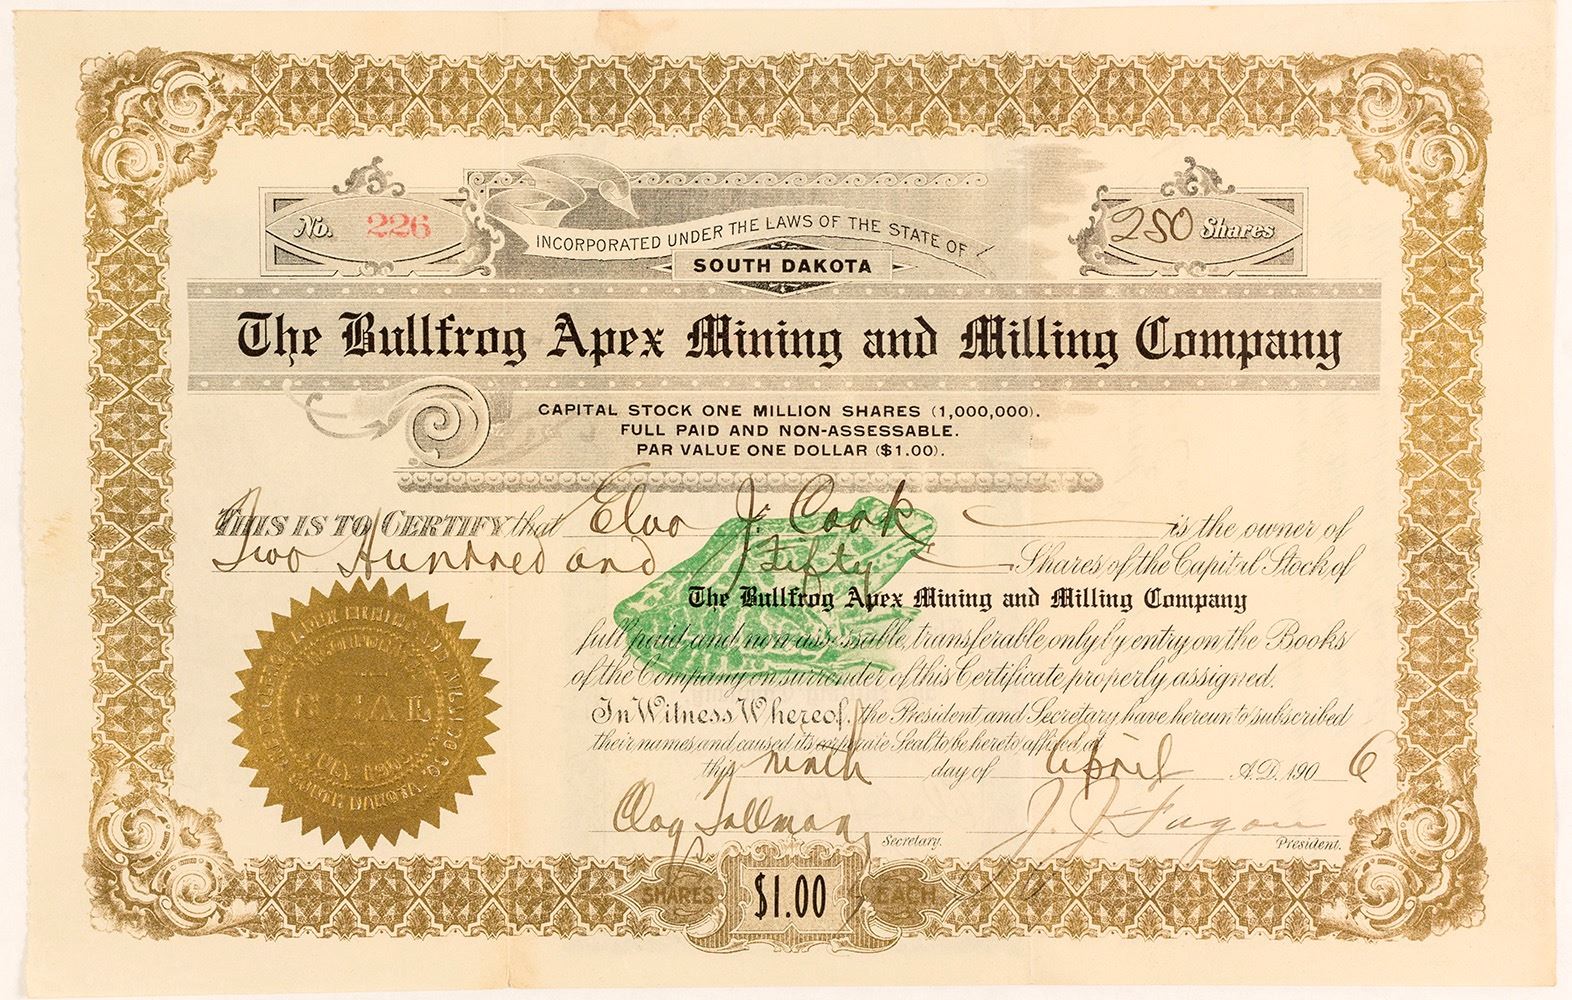 No. 226
250 Shares
INCORPORATED UNDER THE LAWS OF THE STATE OF
SOUTH DAKOTA
The Bullfrog Apex Mining and Milling Company
CAPITAL STOCK ONE MILLION SHARES (1,000,000).
FULL PAID AND NON-ASSESSABLE.
PAR VALUE ONE DOLLAR ($1.00).
THIS IS TO CERTIFY that Elva J. Cook is the owner of
Two Hundred and Fifty Shares of the Capital Stock of
The Bullfrog Apex Mining and Milling Company
full paid and non-assessable, transferable only by entry on the Books
of the Company on surrender of this Certificate properly assigned.
In Witness Whereof, the President and Secretary have hereunto subscribed
their names and caused its corporate Seal to be hereto affixed at
this ninth day of April A.D. 1906
Clay Tallman Secretary.
J. J. Fagan President.
SEAL
SOUTH DAKOTA
SHARES $1.00 EACH